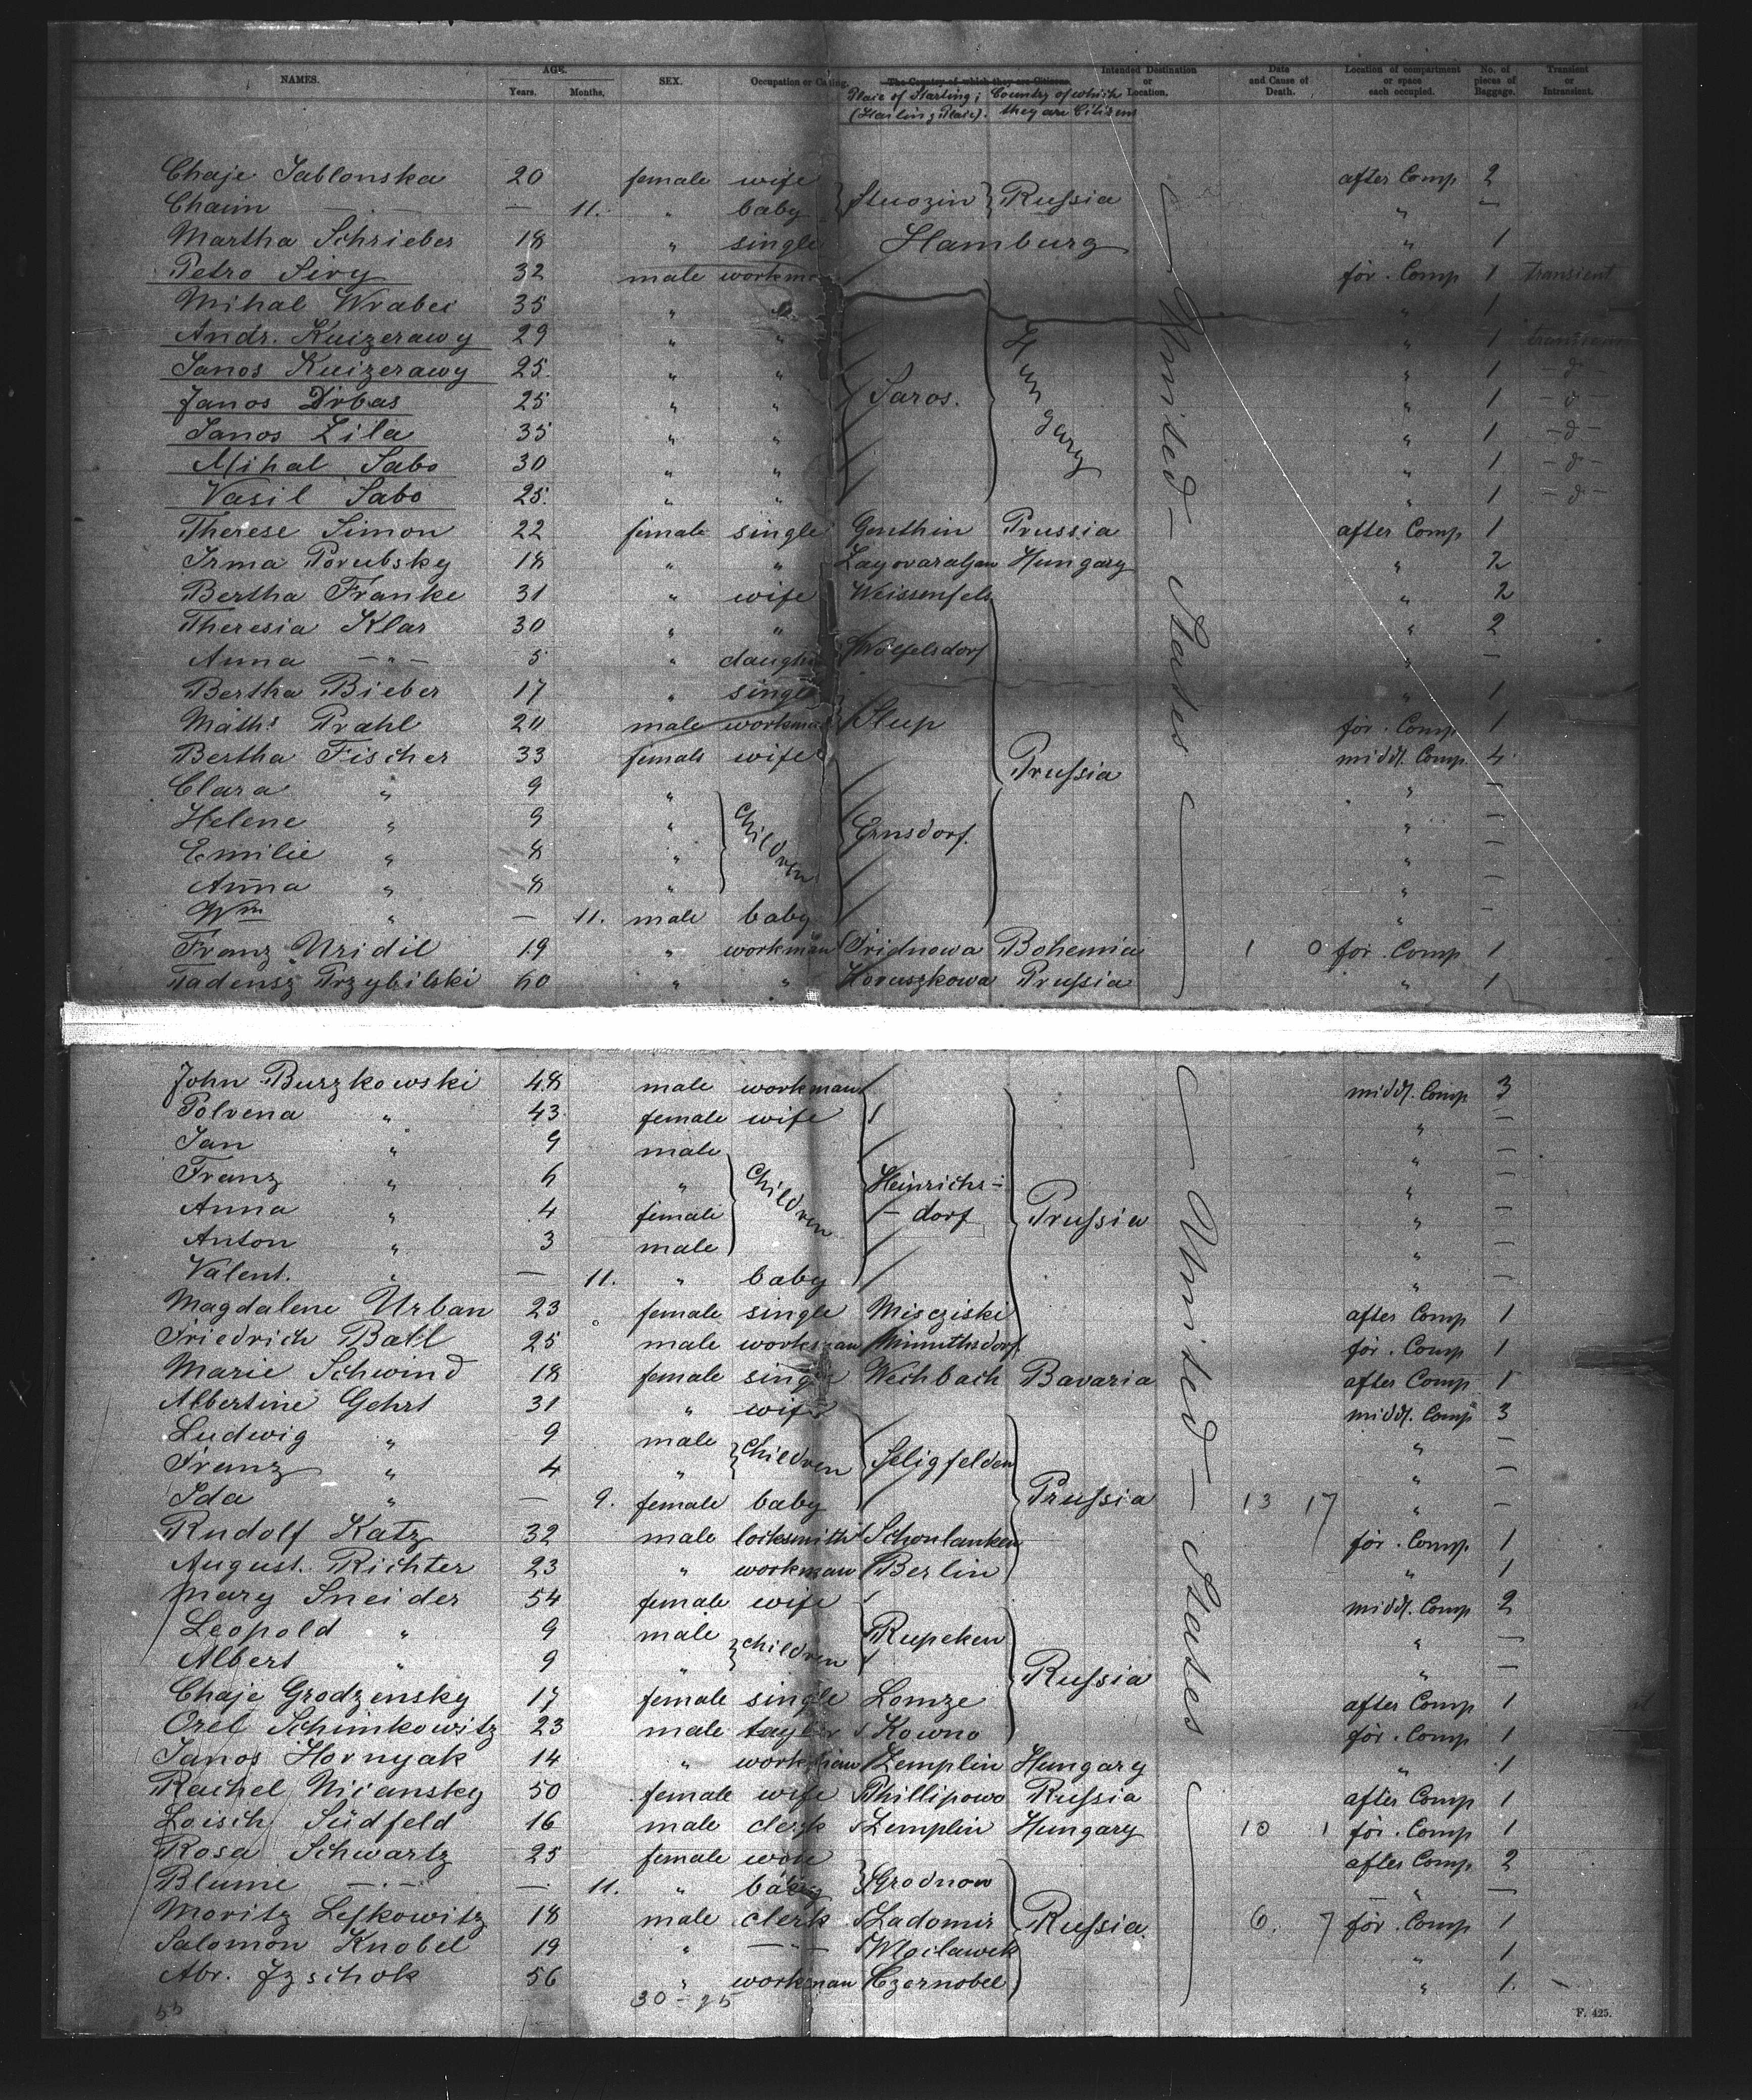 NAMES. AGE. SEX. Occupation or Calling. The Country of which they are Citizens. Intended Destination or Location. Date and Cause of Death. Location of compartment or space each occupied. No. of pieces of Baggage. Transient or Intransient.
Years. Months. Place of Starting; (Hailing Place). Country of which they are Citizens
Chaje Jablonska 20 female wife Russia after Comp 2
Chaim —"— — 11. " baby " —
Martha Schrieber 18 " single Hamburg " 1
Petro Sivy 32 male workman for. Comp 1 transient
Mihal Wrabei 35 " " " 1
Andr. Kuizerawy 29 " " " 1 transient
Janos Kuizerawy 25. " " Hungary " 1 -d-
Janos Drbas 25 " " Saros. " 1 -d-
Janos Zila 35 " " " 1 -d-
Mihal Sabo 30 " " " 1 -d-
Vasil Sabo 25. " " " 1 -d-
Therese Simon 22 female single Genthin Prussia after Comp 1
Irma Porubsky 18 " " Hungary " 2
Bertha Franke 31 " wife Weissenfels " 2
Theresia Klar 30 " " " 2
Anna —"— 5 " daughter Woelfelsdorf " —
Bertha Bieber 17 " single " 1
Maths Prahl 20 male workman Slup for. Comp 1
Bertha Fischer 33 female wife Prussia middl. Comp. 4
Clara " 9 " " —
Helene " 9 " Children Ernsdorf. " —
Emilie " 8 " " —
Anna " 8 " " —
Wm " — 11. male baby " —
Franz Uridil 19 " workman Pridnowa Bohemia 1 0 for. Comp 1
Tadeusz Przybilski 60 " " Horuszkowa Prussia " 1
— United — States —
John Burzkowski 48 male workman middl. Comp 3
Polvena " 43 female wife " —
Jan " 9 male " —
Franz " 6 " Children Heinrichs- " —
Anna " 4 female - dorf Prussia " —
Anton " 3 male " —
Valent. " — 11. " baby " —
Magdalene Urban 23 female single Miscziski after Comp 1
Friedrich Ball 25 male workman for. Comp 1
Marie Schwind 18 female single Wechbach Bavaria after Comp 1
Albertine Gehrt 31 " wife middl. Comp 3
Ludwig " 9 male Children Seligfelden " —
Franz " 4 " " —
Ida " — 9. female baby Prussia 13 17 " —
Rudolf Katz 32 male locksmith Schonlanken for. Comp 1
August. Richter 23 " workman Berlin " 1
Mary Sneider 54 female wife middl. Comp 2
Leopold " 9 male Children Rupeken " —
Albert " 9 " Russia " —
Chaje Grodzensky 17 female single Lomze after Comp 1
Orel Schimkowitz 23 male taylor Kowno for. Comp 1
Janos Hornyak 14 " workman Zemplin Hungary " 1
Rachel Nicansky 50 female wife Phillipowo Russia after Comp 1
Loisch Südfeld 16 male clerk Zemplin Hungary 10 1 for. Comp 1
Rosa Schwartz 25 female after Comp 2
Blume —"— — 11. " baby Grodnow " —
Moritz Lefkowitz 18 male clerk Ladomir Russia. 6. 7 for. Comp 1
Salomon Knobel 19 " —"— Wloclawek " 1
Abr. Jzschok 56 " workman Czernobel " 1.
— United — States —
55 30-25
F. 425.